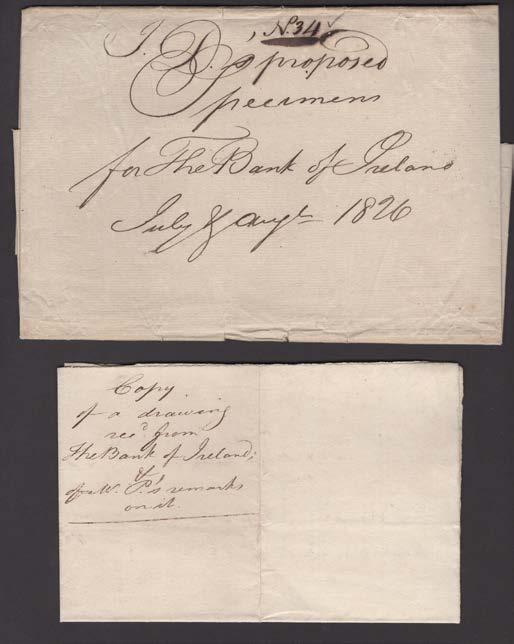 N. 34
J. D.'s proposed
Specimens
for The Bank of Ireland
July & Augt. 1826
Copy
of a drawing
recd. from
The Bank of Ireland;
&
of W. P.'s remarks
on it.